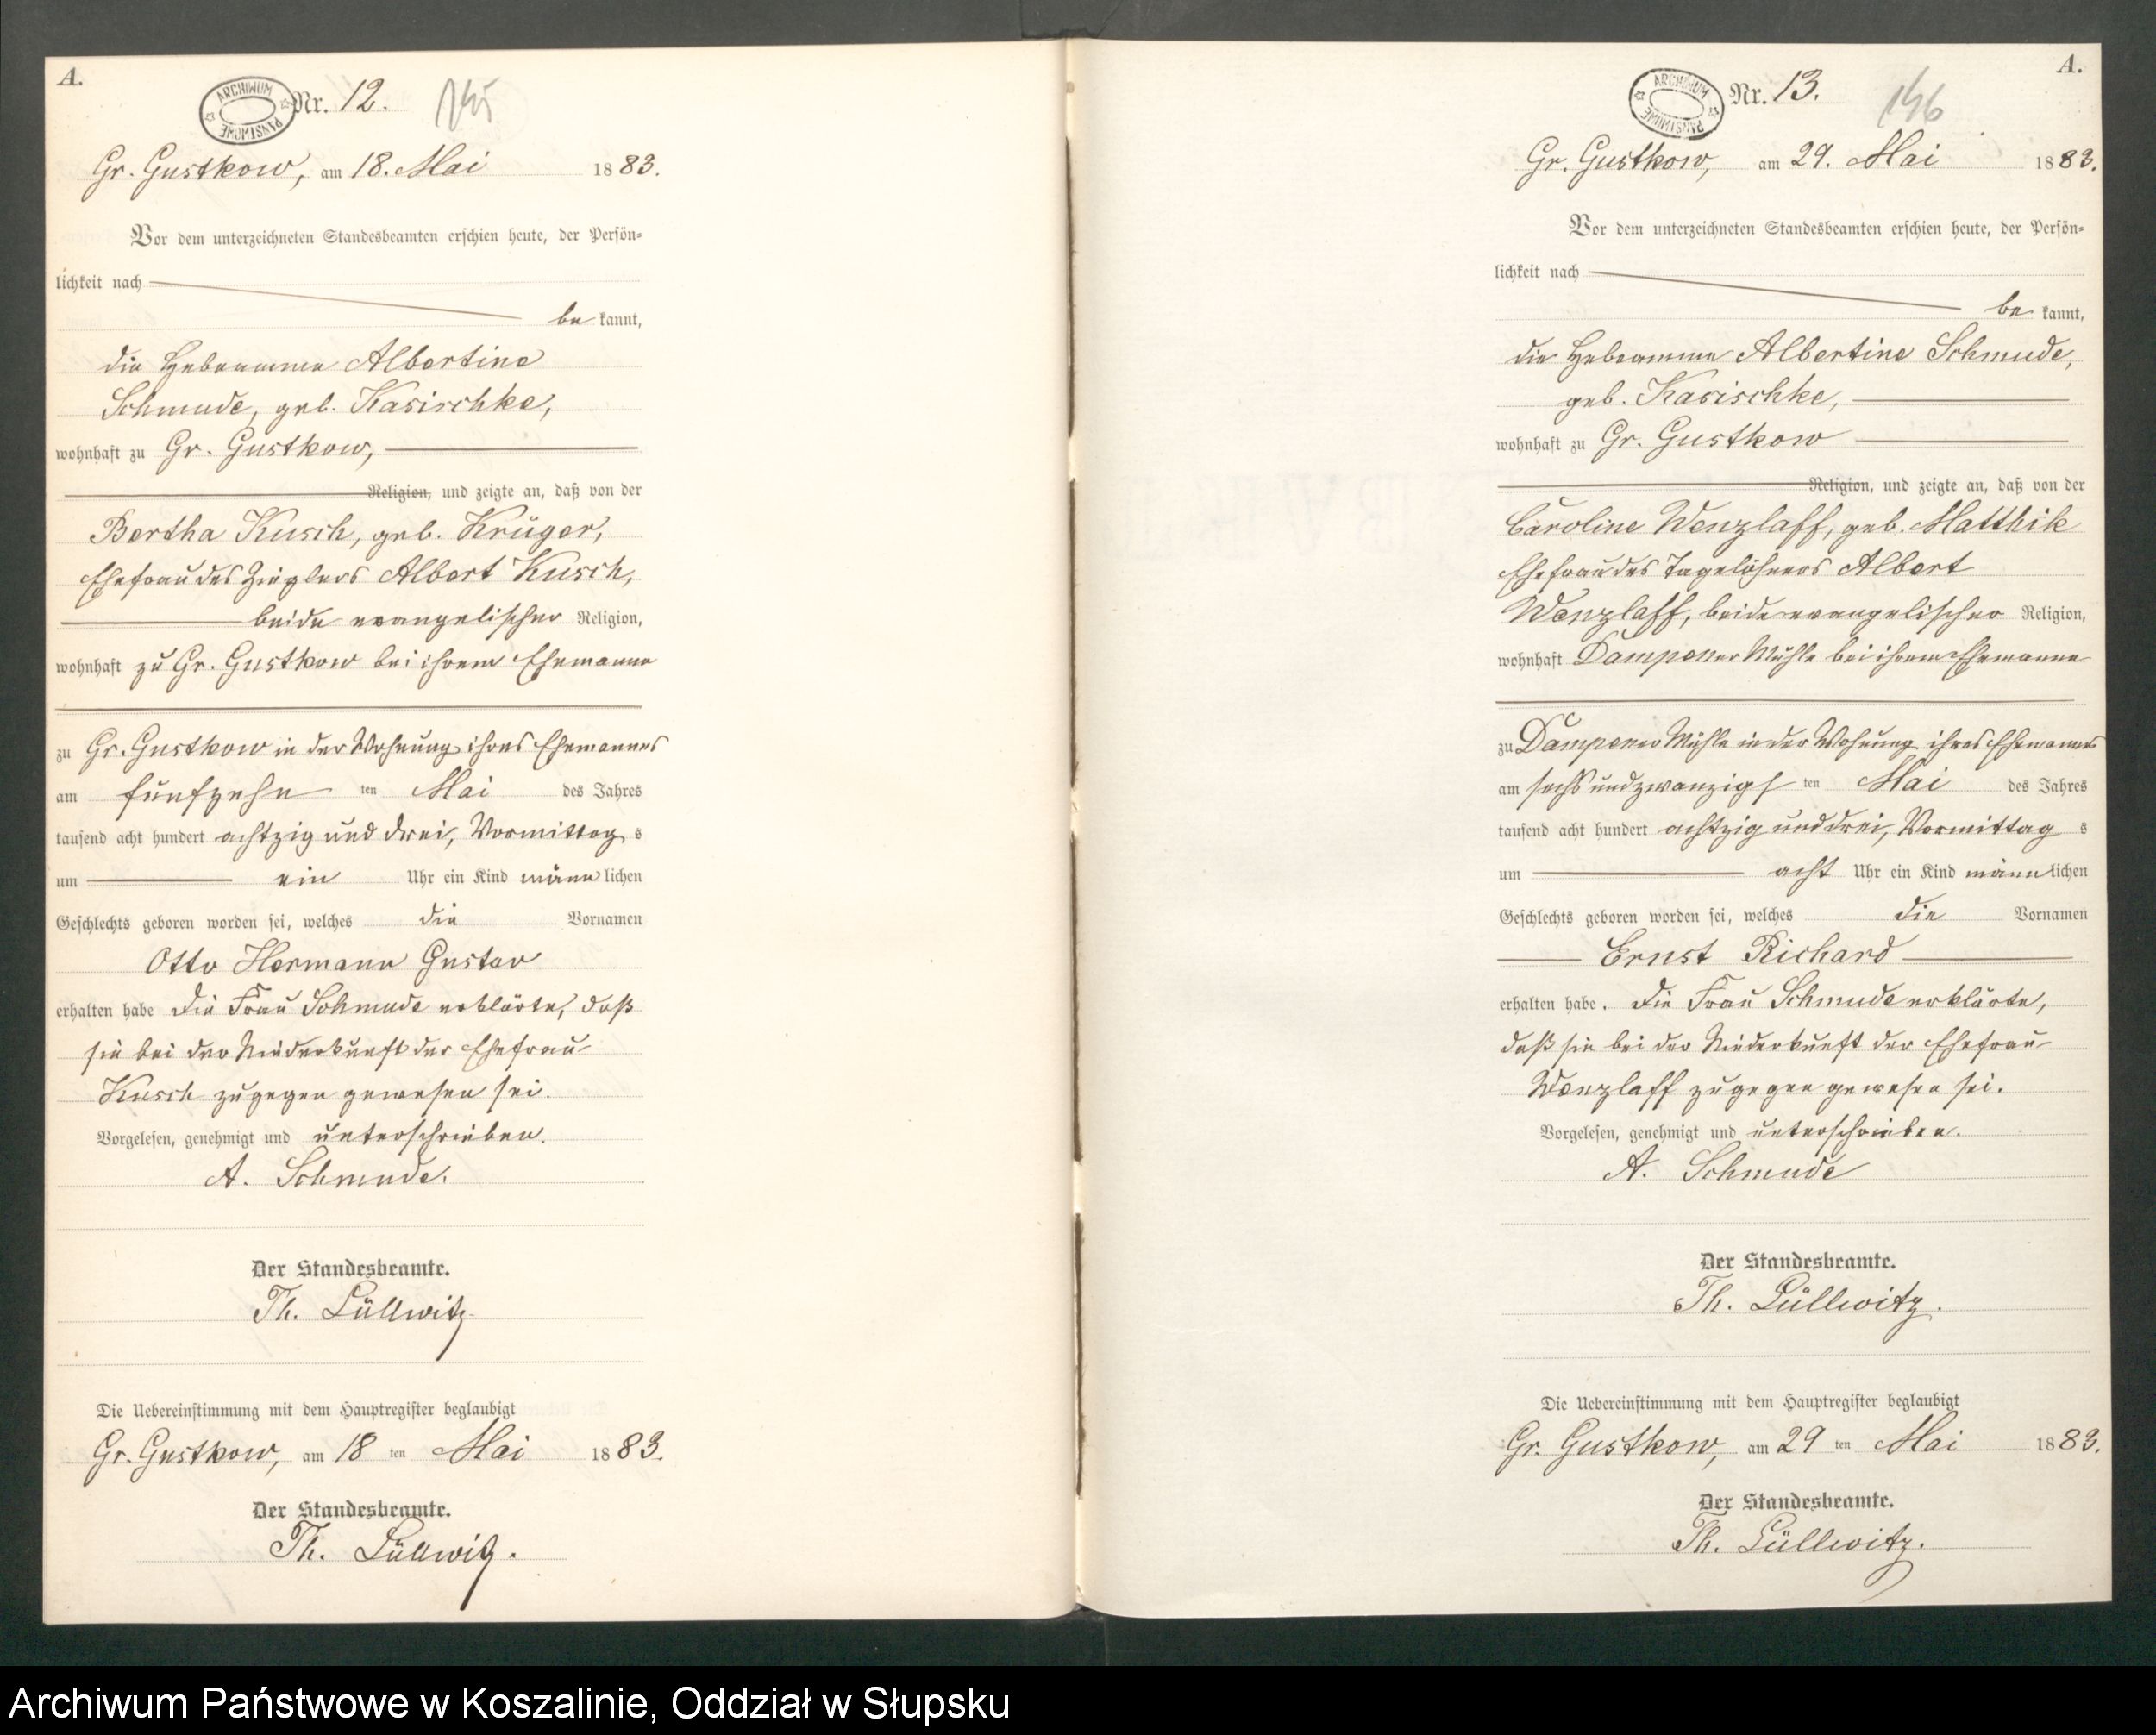 A.
ARCHIWUM PAŃSTWOWE
Nr. 12.
145
Gr. Gustkow, am 18. Mai 1883.
Vor dem unterzeichneten Standesbeamten erschien heute, der Persön-
lichkeit nach
bekannt,
die Hebeamme Albertine
Schmude, geb. Kasischke,
wohnhaft zu Gr. Gustkow,
Religion, und zeigte an, daß von der
Bertha Kusch, geb. Krüger,
Ehefrau des Zieglers Albert Kusch,
beide evangelischer Religion,
wohnhaft zu Gr. Gustkow bei ihrem Ehemanne
zu Gr. Gustkow in der Wohnung ihres Ehemannes
am fünfzehn ten Mai des Jahres
tausend acht hundert achtzig und drei, Vormittags
um ein Uhr ein Kind männlichen
Geschlechts geboren worden sei, welches die Vornamen
Otto Hermann Gustav
erhalten habe die Frau Schmude erklärte, daß
sie bei der Niederkunft der Ehefrau
Kusch zugegen gewesen sei.
Vorgelesen, genehmigt und unterschrieben.
A. Schmude.
Der Standesbeamte.
Th. Lüllwitz
Die Uebereinstimmung mit dem Hauptregister beglaubigt
Gr. Gustkow, am 18 ten Mai 1883.
Der Standesbeamte.
Th. Lüllwitz.
A.
ARCHIWUM PAŃSTWOWE
Nr. 13.
146
Gr. Gustkow, am 29. Mai 1883.
Vor dem unterzeichneten Standesbeamten erschien heute, der Persön-
lichkeit nach
bekannt,
die Hebeamme Albertine Schmude,
geb. Kasischke,
wohnhaft zu Gr. Gustkow
Religion, und zeigte an, daß von der
Caroline Wenzlaff, geb. Matthik
Ehefrau des Tagelöhners Albert
Wenzlaff, beide evangelischer Religion,
wohnhaft Dampener Mühle bei ihrem Ehemanne
zu Dampener Mühle in der Wohnung ihres Ehemannes
am sechs und zwanzigs ten Mai des Jahres
tausend acht hundert achtzig und drei, Vormittag s
um acht Uhr ein Kind männlichen
Geschlechts geboren worden sei, welches die Vornamen
Ernst Richard
erhalten habe. Die Frau Schmude erklärte,
daß sie bei der Niederkunft der Ehefrau
Wenzlaff zugegen gewesen sei.
Vorgelesen, genehmigt und unterschrieben.
A. Schmude
Der Standesbeamte.
Th. Lüllwitz.
Die Uebereinstimmung mit dem Hauptregister beglaubigt
Gr. Gustkow, am 29 ten Mai 1883.
Der Standesbeamte.
Th. Lüllwitz.
Archiwum Państwowe w Koszalinie, Oddział w Słupsku